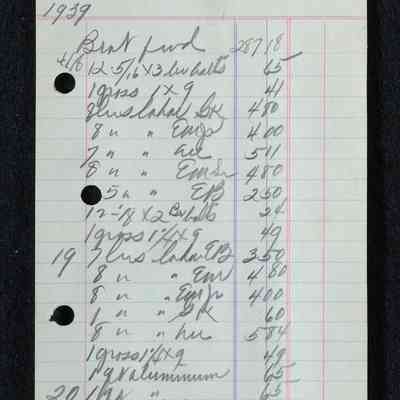 1939
Brot fwd 287 18
4/8 12-5/16 X 3 bolts 65
1 gross 1 X 9 41
8 hrs labor SK 480
8 " " EmJr 400
7 " " 511
8 " " EmSr 480
5 " " EB 250
12- X 2 bolts 24
1 gross 1¼ X 9 49
19 7 hrs labor EB 350
8 " " Emr 480
8 " " EmJr 400
1 " " SK 60
8 " " 584
1 gross 1¼ X 9 49
1 qt aluminum 65
20 1 qt " 65